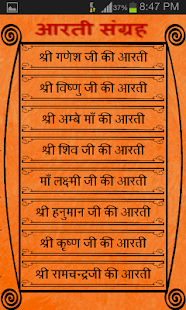 37% 8:47 PM
आरती संग्रह
श्री गणेश जी की आरती
श्री विष्णु जी की आरती
श्री अम्बे माँ की आरती
श्री शिव जी की आरती
माँ लक्ष्मी जी की आरती
श्री हनुमान जी की आरती
श्री कृष्ण जी की आरती
श्री रामचन्द्रजी की आरती